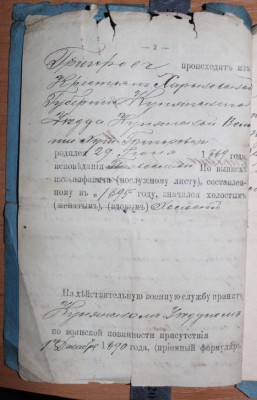 — 2 —
Григорьев происходитъ изъ
Крестьянъ Харьковской
Губерніи Купянскаго
Уѣзда Купянской Волос
ти
родился 29 869 года,
исповѣданія По выпискѣ
изъ алфавита (послужному листу), составлен-
ному въ 1895 году, значился холостымъ
(женатымъ), (вдовымъ) Холостой
На дѣйствительную военную службу принятъ
Купянскимъ Уѣзднымъ
по воинской повинности присутствія
1 Декабря 1890 года, (пріемный формуляръ